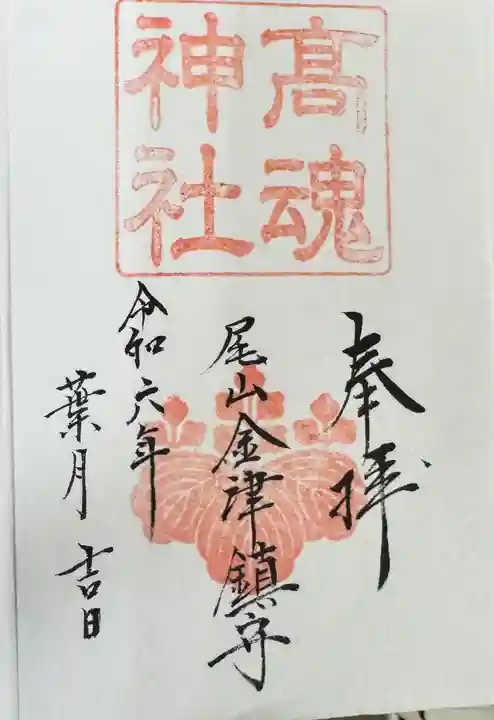 髙魂
神社
奉拝
尾山金津鎮守
令和六年
葉月吉日